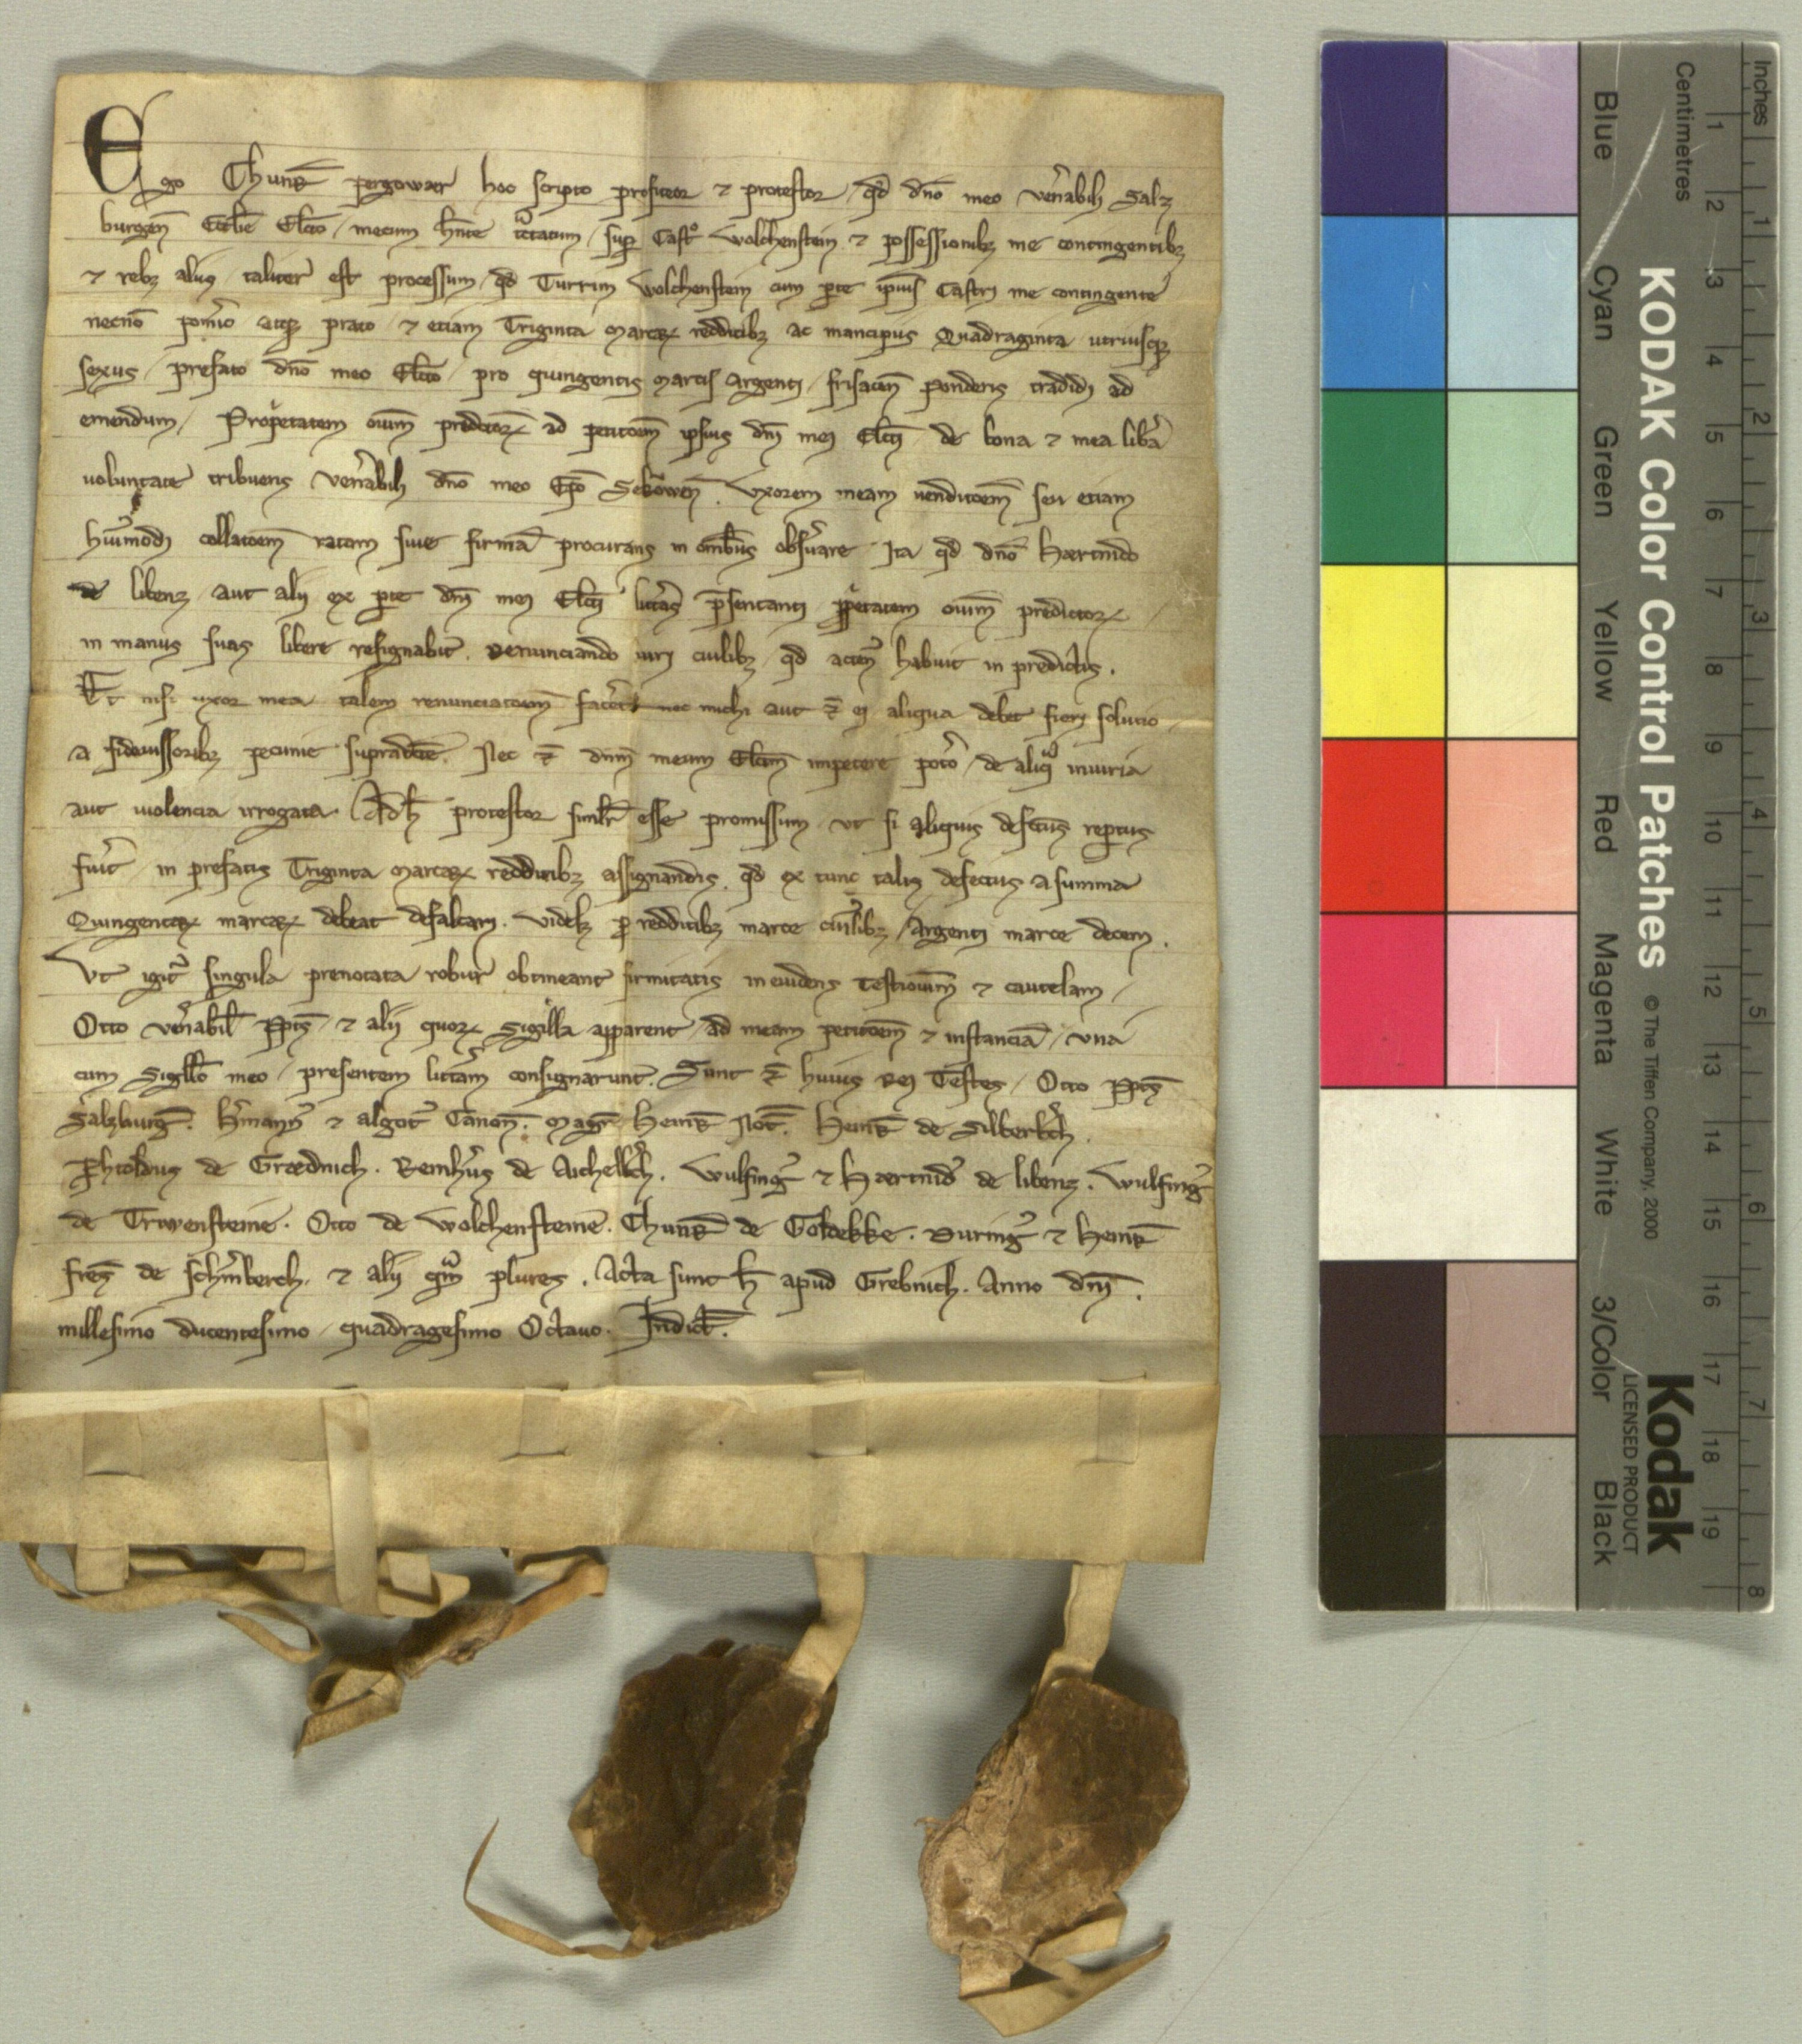 Ego Chunr̄ pergowær hoc scripto profiteor ⁊ protestor / qd̄ dn̄o meo ven̄abili Salz
burgen̄ Eccl̄ie Elc̄to / mecum hn̄te tc̄tatum / sup̄ Castº Wolchenstein ⁊ possessionibꝫ me contingentibꝫ
⁊ rebꝫ aliis taliter est processum / qd̄ Turrim Wolchenstein cum ꝑte ip̄ius Castri me contingente
necnō pom̄io atqꝫ prato ⁊ etiam Triginta Marcaꝝ redditibꝫ ac mancipiis Quadraginta utriusqꝫ
sexus / prefato dn̄o meo Elc̄to / pro quingentis Marcis Argenti / frisacen̄ ponderis tradidi ad
emendum / Proprietatem om̄iu predictoꝝ ad petitōem ipsius dn̄i mei Elc̄ti de bona ⁊ mea lib̄a
voluntate tribuens ven̄abili dn̄o meo Ep̄o Sekowen̄ . Uxorem meam venditōem seu etiam
huīmodi collatōem ratam sive firmā procurans in omībus obsv̄are Ita qd̄ dn̄o Hærtnido
de libenz / aut alii ex ꝑte dn̄i mei Elc̄ti litt̄as p̄sentanti ꝓprietatem om̄iu predictoꝝ /
in manus suas libere resignabit . Renunciando iuri cuilibꝫ qd̄ acten̄ habuit in predictis .
Et nisi uxor mea talem renunciatōem facēt nec michi aut ei aliqua debet fieri solutio
a fideiussoribꝫ pecunie supradc̄te . Nec dn̄m meum Elc̄tm impetere potō / de aliq̄ iniuria
aut violencia irrogata . Adh̄ protestor simil̄r esse promissum / ut si aliquis defectus reꝑtus
fuīt in prefatis Triginta Marcaꝝ redditibꝫ assignandis . qd̄ ex tunc talis defectus a summa
Quingentaꝝ marcaꝝ debeat defalcari . videlꝫ ꝓ redditibꝫ marce cuiuslibꝫ / Argenti marce decem .
Ut igit̄ singula prenotata robur obtineant firmitatis in evidens Testimoniū ⁊ cautelam /
Otto ven̄abil̄ p̄pt̄s ⁊ alii quoꝝ Sigilla apparent / ad meam petitōem ⁊ instanciā / una
cum Sigillo meo / presentem litt̄am consignarunt . Sunt huius Rei Testes / Otto p̄pt̄s
Salzburḡ . Hm̄ann̄ ⁊ algot̄ Canon̄ . Magr̄ Heinr̄ Not̄ . Heinr̄ de Silberb̄ch .
P̄htoldus de Grædnich . Reinh̄us de Aichelb̄ch . Wulfinḡ ⁊ Hærtnid̄ de libenz . Wulfinḡ
de Triwensteine . Otto de Wolchensteine . Chunr̄ de Goldekke . Durinḡ ⁊ Heinr̄
fres̄ de sch̄inberch . ⁊ alii qm̄ plures . Acta sunt h̄ apud Grebnich . Anno dn̄i .
millesimo ducentesimo / quadragesimo Octavo . Indict̄ .
Inches
Centimetres
1 2 3 4 5 6 7 8 9 10 11 12 13 14 15 16 17 18 19
1 2 3 4 5 6 7 8
KODAK Color Control Patches © The Tiffen Company, 2000
Kodak
LICENSED PRODUCT
Blue Cyan Green Yellow Red Magenta White 3/Color Black